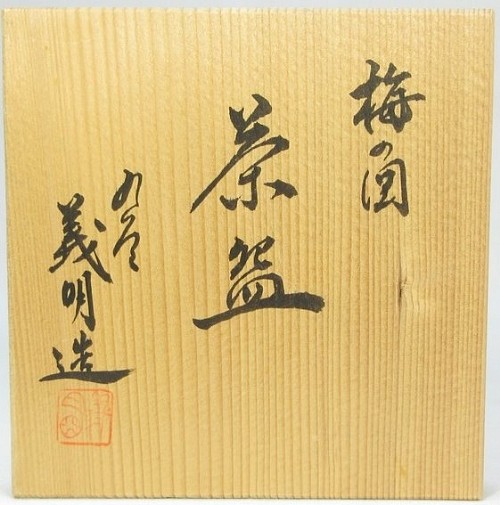 梅の図
茶盌
九谷
義明造